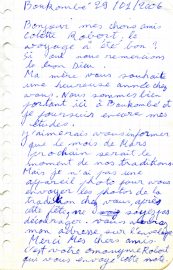 Bonkombo 29/01/2006
Bonjour mes chers amis
Colette Robert, le
voyage a été bon ?
Si oui nous remercions
le bon Dieu
Ma mère vous souhaite
une heureuse année chez
vous. Nous sommes bien
portant ici à Bonkombo et
je poursuis encore mes
études.
j'aimerais vous informer
que le mois de Mars
prochain serait le
moment de nos traditions
Mais je n'ai pas une
appareil photo pour vous
envoyer les photos de la
tradition chez vous, après
cette fête, ne soyez pas
décourager vous
mon adresse sur l'enveloppe
Merci Mes chers amis
c'est votre
qui vous envoye cette note